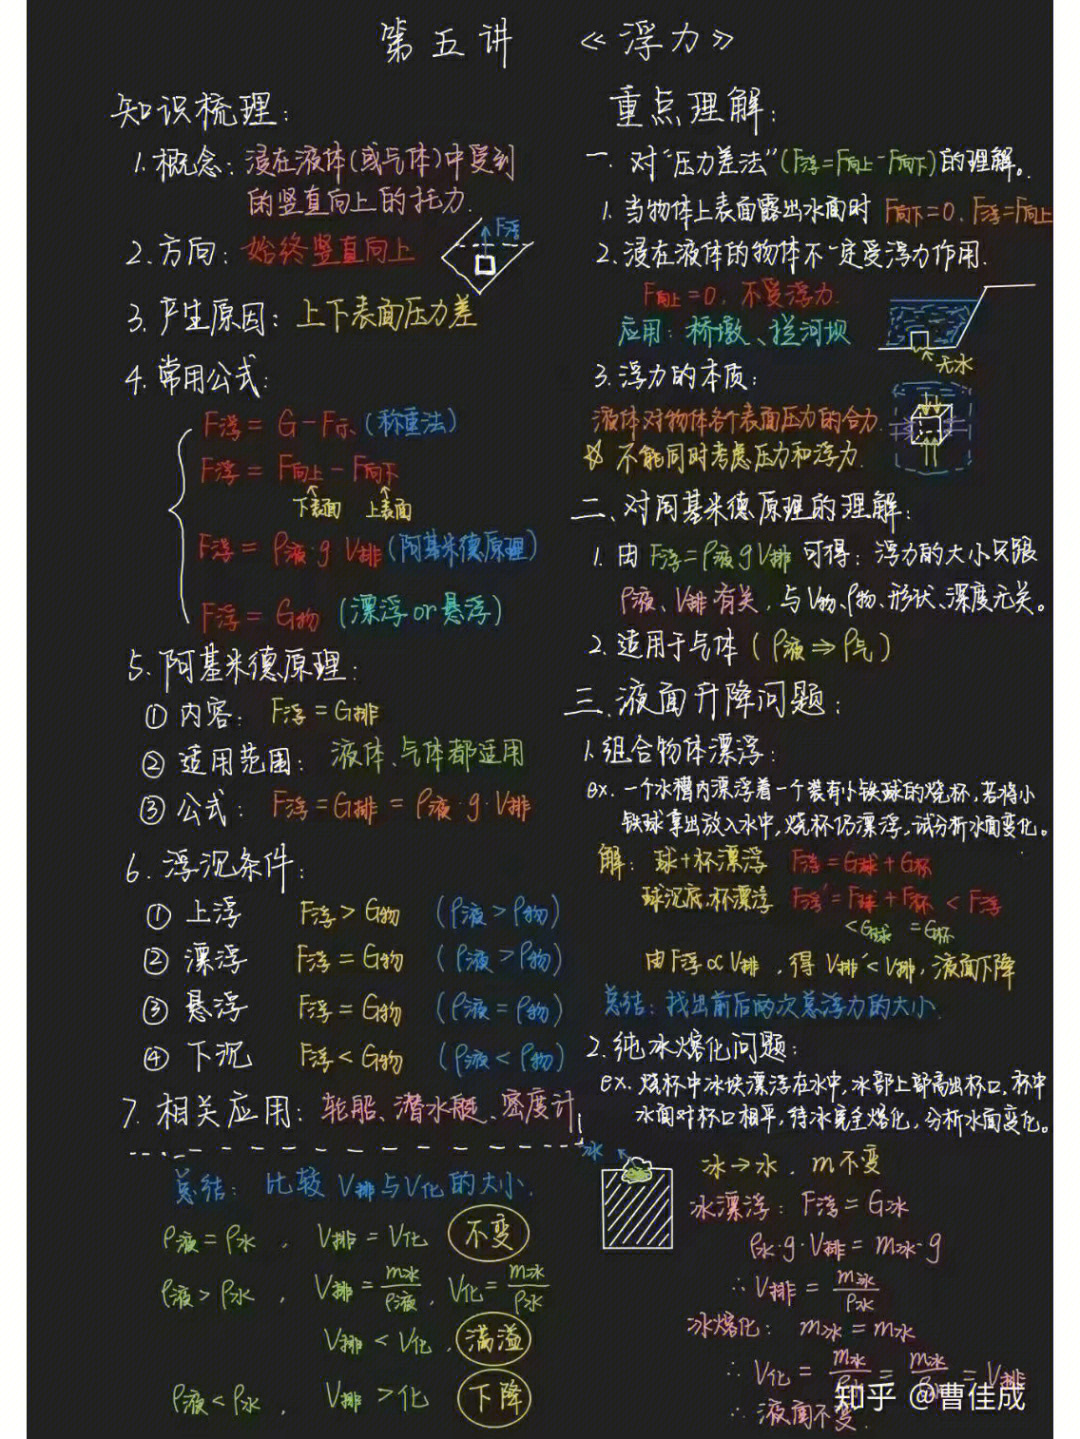 第五讲 《浮力》
知识梳理:
1. 概念: 浸在液体(或气体)中受到
的竖直向上的托力.
2. 方向: 始终竖直向上
F浮
3. 产生原因: 上下表面压力差
4. 常用公式:
F浮 = G - F示 (称重法)
F浮 = F向上 - F向下
下表面 上表面
F浮 = ρ液·g V排 (阿基米德原理)
F浮 = G物 (漂浮or悬浮)
5. 阿基米德原理:
① 内容: F浮 = G排
② 适用范围: 液体、气体都适用
③ 公式: F浮 = G排 = ρ液·g·V排
6. 浮沉条件:
① 上浮 F浮 > G物 (ρ液 > ρ物)
② 漂浮 F浮 = G物 (ρ液 > ρ物)
③ 悬浮 F浮 = G物 (ρ液 = ρ物)
④ 下沉 F浮 < G物 (ρ液 < ρ物)
7. 相关应用: 轮船、潜水艇、密度计
总结: 比较 V排与V化的大小.
ρ液 = ρ水 , V排 = V化 不变
ρ液 > ρ水 , V排 = m冰/ρ液 , V化 = m冰/ρ水
V排 < V化 , 满溢
ρ液 < ρ水 , V排 > 化 下降
重点理解:
一. 对"压力差法"(F浮=F向上-F向下)的理解。
1. 当物体上表面露出水面时 F向下=0, F浮=F向上
2. 浸在液体的物体不一定受浮力作用.
F向上=0, 不受浮力.
应用: 桥墩、拦河坝
无水
3. 浮力的本质:
液体对物体各个表面压力的合力.
☆ 不能同时考虑压力和浮力.
二、对阿基米德原理的理解:
1. 由 F浮=ρ液gV排 可得: 浮力的大小只跟
ρ液、V排有关, 与V物、ρ物、形状、深度无关。
2. 适用于气体 (ρ液⇒ρ气)
三.液面升降问题:
1. 组合物体漂浮:
ex. 一个水槽内漂浮着一个装有小铁球的烧杯, 若将小
铁球拿出放入水中, 烧杯仍漂浮, 试分析水面变化。
解: 球+杯漂浮 F浮=G球+G杯
球沉底.杯漂浮 F浮'=F球+F杯 < F浮
<G球 =G杯
由F浮∝V排 , 得 V排'<V排, 液面下降
总结: 找出前后两次总浮力的大小.
2. 纯冰熔化问题:
ex. 烧杯中冰块漂浮在水中, 冰部上部高出杯口, 杯中
水面对杯口相平, 待冰完全熔化, 分析水面变化。
冰
冰→水 , m不变
冰漂浮: F浮=G冰
ρ水·g·V排=m冰·g
∴V排 = m冰/ρ水
冰熔化: m冰=m水
∴ V化 = m水/ρ水 = m冰/ρ水 = V排
∴ 液面不变
知乎 @曹佳成